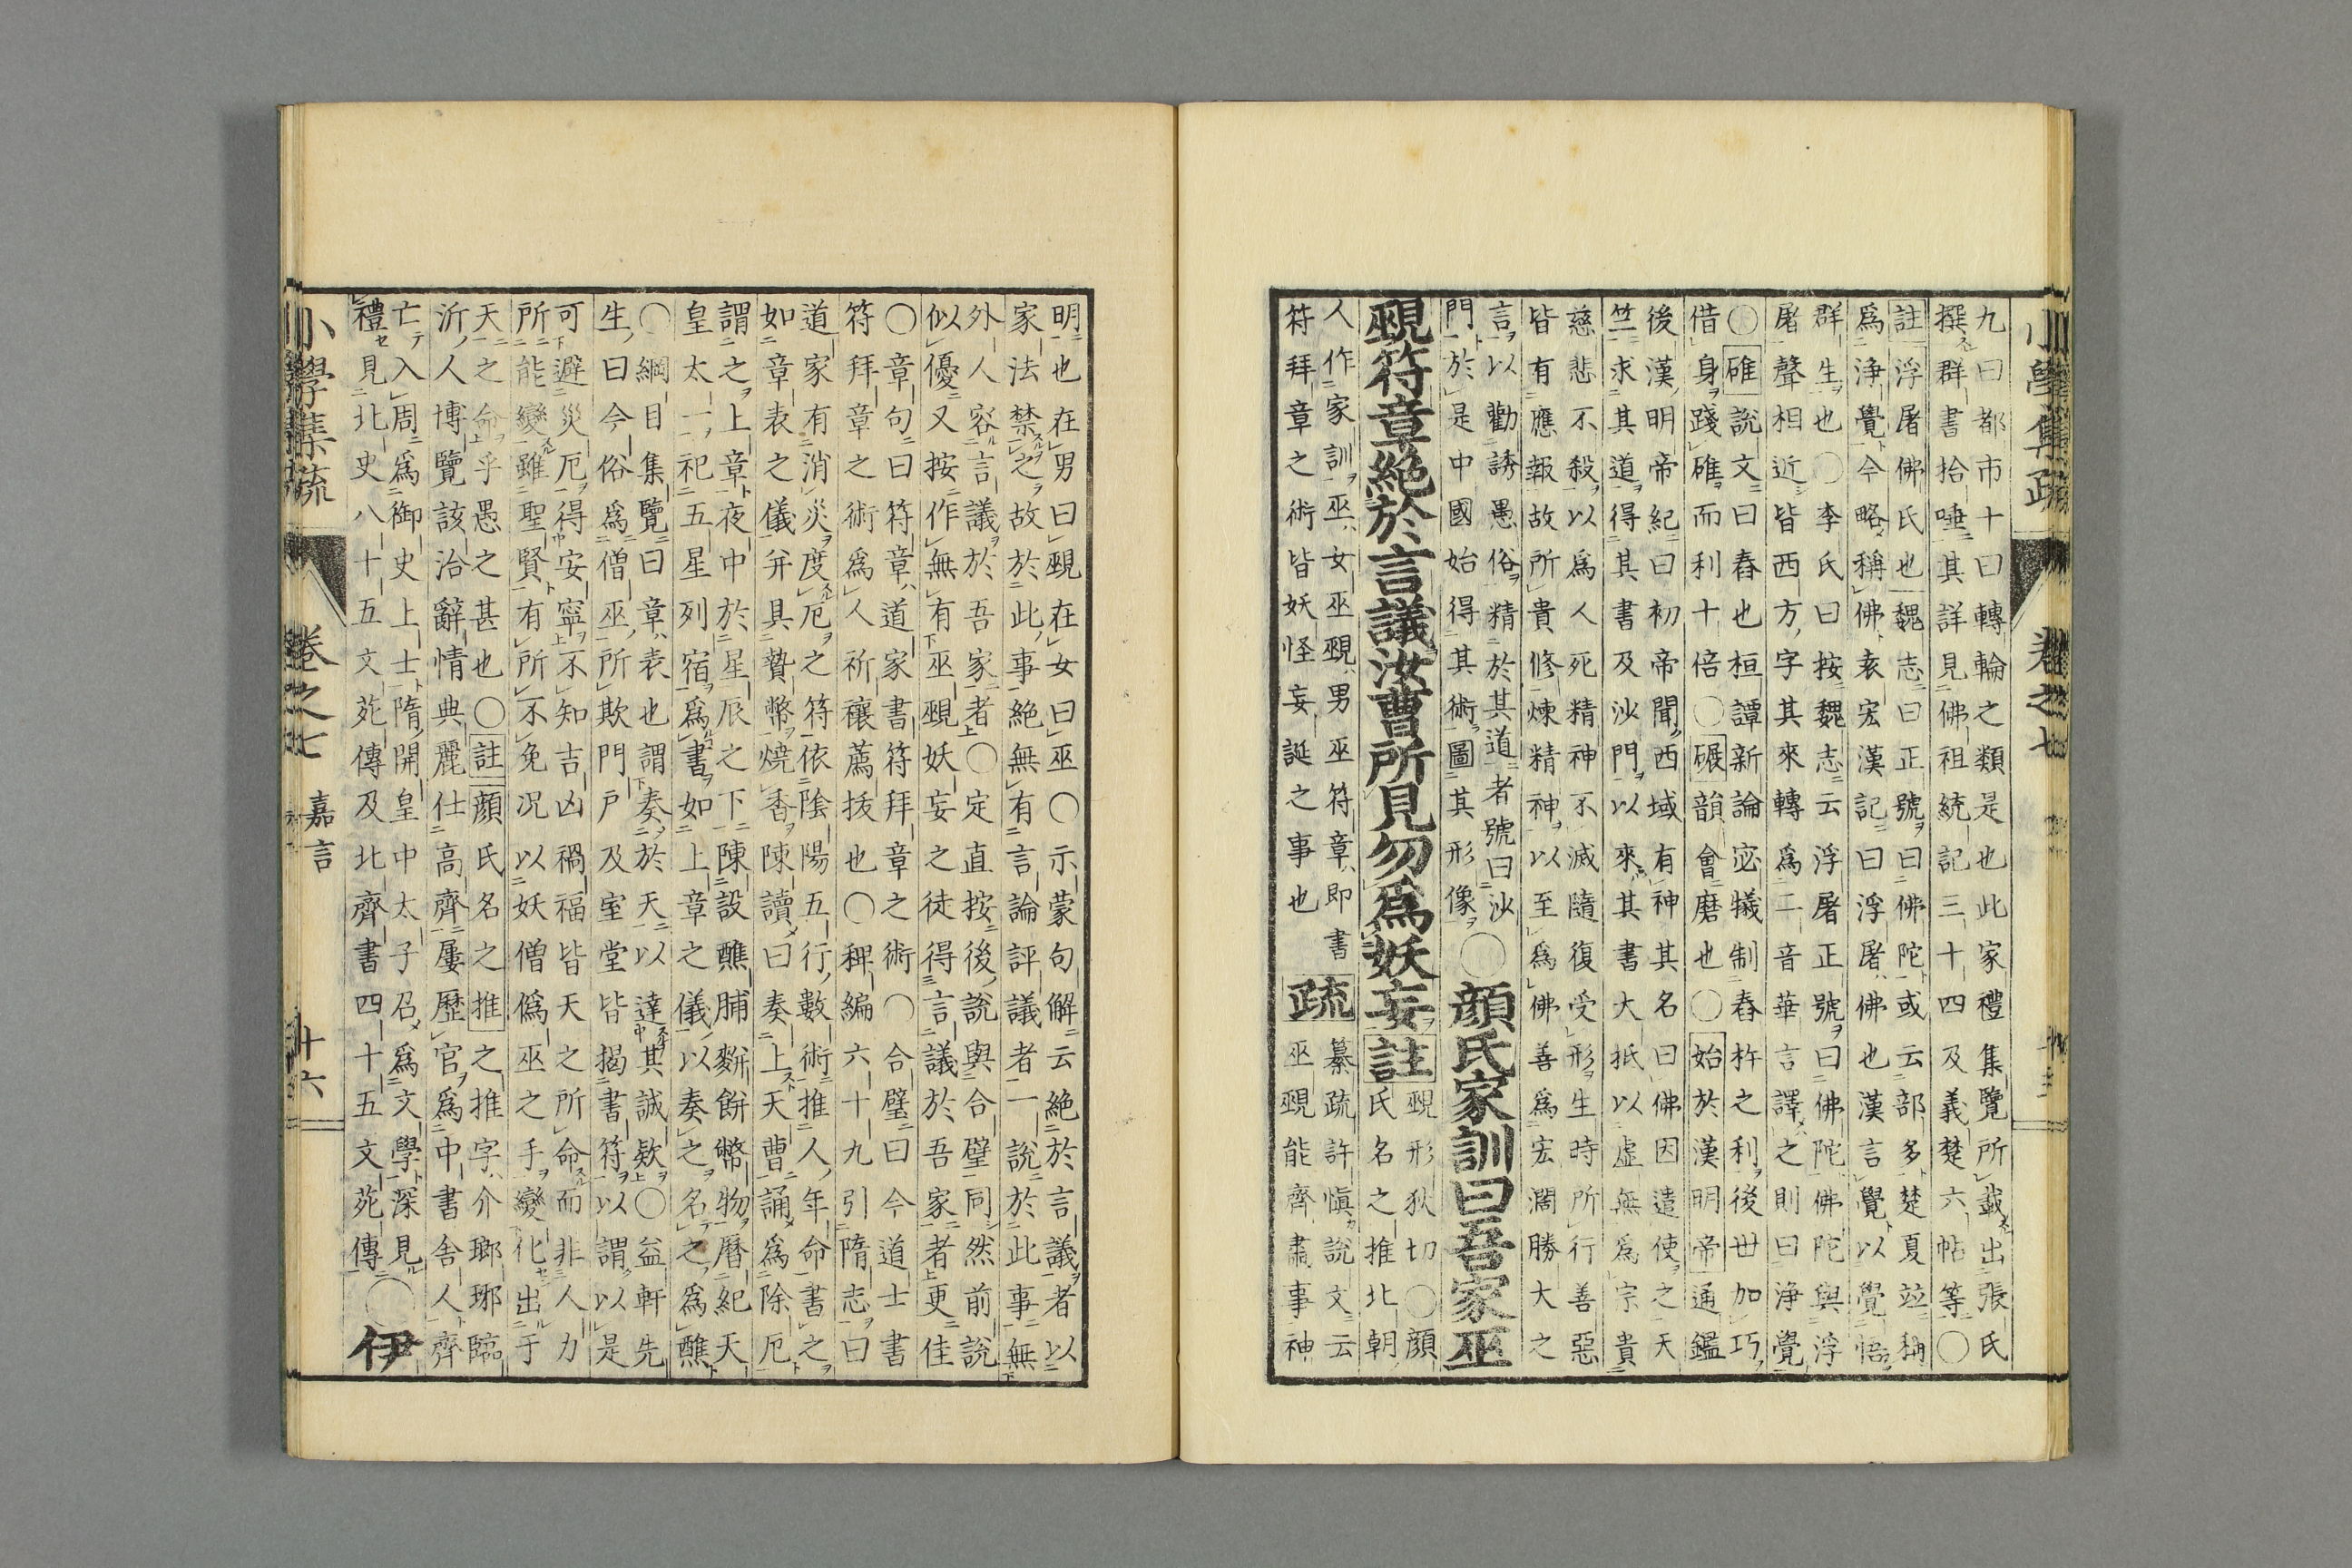 小學集疏
卷之七
九曰都市十曰轉輪之類是也此家禮集覽所載出張氏
撰群書拾唾其詳見佛祖統記三十四及義楚六帖等〇
註浮屠佛氏也魏志曰正號曰佛陀或云部多楚夏竝稱
爲浄覺今略稱佛袁宏漢記曰浮屠佛也漢言覺以覺悟
群生也〇李氏曰按魏志云浮屠正號曰佛陀佛陀與浮
屠聲相近皆西方字其來轉爲二音華言譯之則曰浄覺
〇碓說文曰舂也桓譚新論宓犠制舂杵之利後世加巧
借身踐碓而利十倍〇碾韻會磨也〇始於漢明帝通鑑
後漢明帝紀曰初帝聞西域有神其名曰佛因遣使之天
竺求其道得其書及沙門以來其書大抵以虛無爲宗貴
慈悲不殺以爲人死精神不滅隨復受形生時所行善惡
皆有應報故所貴修煉精神以至爲佛善爲宏濶勝大之
言以勸誘愚俗精於其道者號曰沙
門於是中國始得其術圖其形像〇
顏氏家訓曰吾家巫
覡符章絕於言議汝曹所見勿爲妖妄註
覡形狄切〇顏
氏名之推北朝
人作家訓巫女巫覡男巫符章卽書
符拜章之術皆妖怪妄誕之事也疏
纂疏許愼說文云
巫覡能齊肅事神
明也在男曰覡在女曰巫〇示蒙句解云絕於言議者以
家法禁之故於此事絕無有言論評議者一說於此事無
外人容言議於吾家者〇定直按後說與合璧同然前說
似優又按作無有巫覡妖妄之徒得言議於吾家者更佳
〇章句曰符章道家書符拜章之術〇合璧曰今道士書
符拜章之術爲人祈禳薦拔也〇稗編六十九引隋志曰
道家有消災度厄之符依陰陽五行數術推人年命書之
如章表之儀并具贄幣燒香陳讀曰奏上天曹誦爲除厄
謂之上章夜中於星辰之下陳設醮脯麪餅幣物曆紀天
皇太一祀五星列宿爲書如上章之儀以奏之名之爲醮
〇綱目集覽曰章表也謂奏於天以達其誠欵〇益軒先
生曰今俗爲僧巫所欺門戸及室堂皆揭書符以謂以是
可避災厄得安寧不知吉凶禍福皆天之所命而非人力
所能變雖聖賢有所不免况以妖僧僞巫之手變化出于
天之命乎愚之甚也〇註顏氏名之推之推字介瑯琊臨
沂人博覽該洽辭情典麗仕高齊屢歷官爲中書舍人齊
亡入周爲御史上士隋開皇中太子召爲文學深見
禮見北史八十五文苑傳及北齊書四十五文苑傳〇
伊
小學集疏
卷之七
嘉言
十六